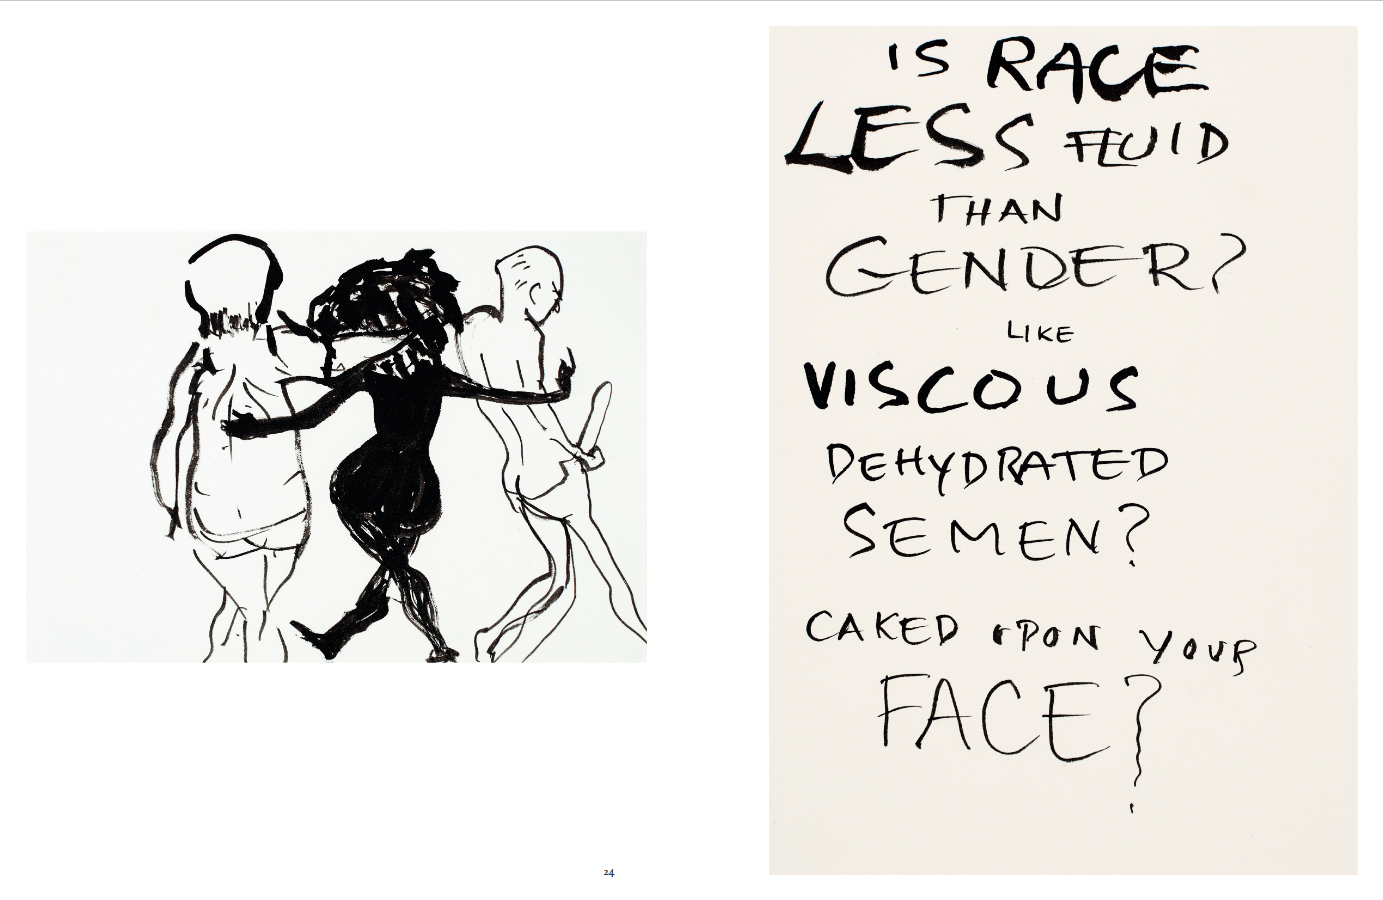 IS RACE
LESS FLUID
THAN
GENDER?
LIKE
VISCOUS
DEHYDRATED
SEMEN?
CAKED UPON YOUR
FACE?
24